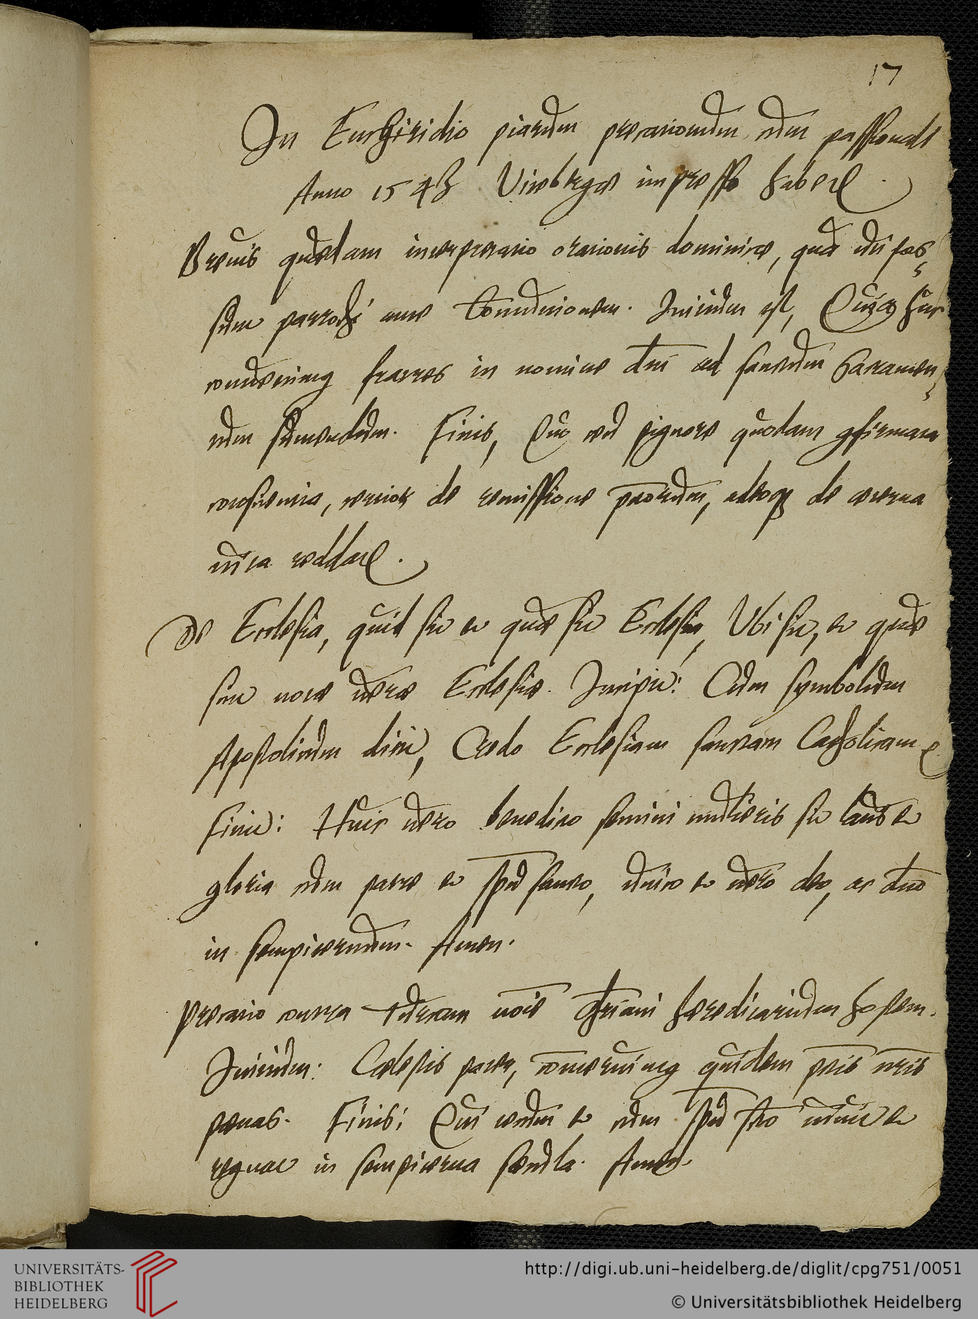 17
In Enchiridio piarum precationum cum passionali
Anno 1543 Vitebergae impresso habetur.
Brevis quaedam interpretatio orationis dominicae, qua uti pos=
sunt parrochi ante Communionem. Initium est, Quia huc
convenimus fratres in nomine dni ad sanctum Sacramen=
tum sumendum. Finis, Quo ceu pignore quodam confirmata
conscientia, certior de remissione peccatorum, adeoque de aeterna
vita reddatur.
De Ecclesia, quid sit et quae sit Ecclesia, Ubi sit, et quae
sint notae verae Ecclesiae. Incipit: Cum symbolum
Apostolicum dicit, Credo Ecclesiam sanctam Catholicam
Finit: Huic vero benedicto semini mulieris sit laus et
gloria cum patre et spu sancto, unico et vero deo, ac dno
in sempiternum. Amen.
Precatio contra Turcam nois Christiani haereditarium hostem.
Initium: Caelestis pater, comeruimus quidem pctis nris
poenas. Finis: Qui tecum et cum spu scto vivit et
regnat in sempiterna saecula. Amen.
UNIVERSITÄTS-
BIBLIOTHEK
HEIDELBERG
http://digi.ub.uni-heidelberg.de/diglit/cpg751/0051
© Universitätsbibliothek Heidelberg